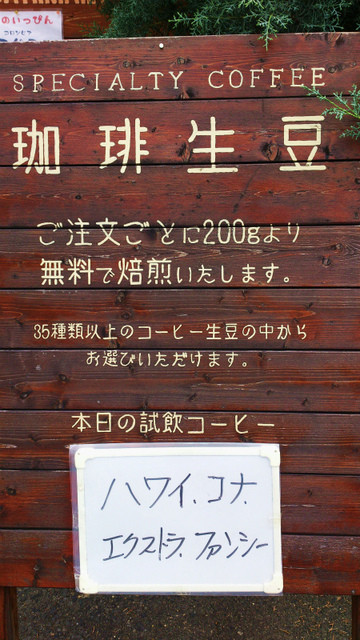 のいっぴん
SPECIALTY COFFEE
珈琲生豆
ご注文ごとに200gより
無料で焙煎いたします。
35種類以上のコーヒー生豆の中から
お選びいただけます。
本日の試飲コーヒー
ハワイ、コナ、
エクストラ、ファンシー